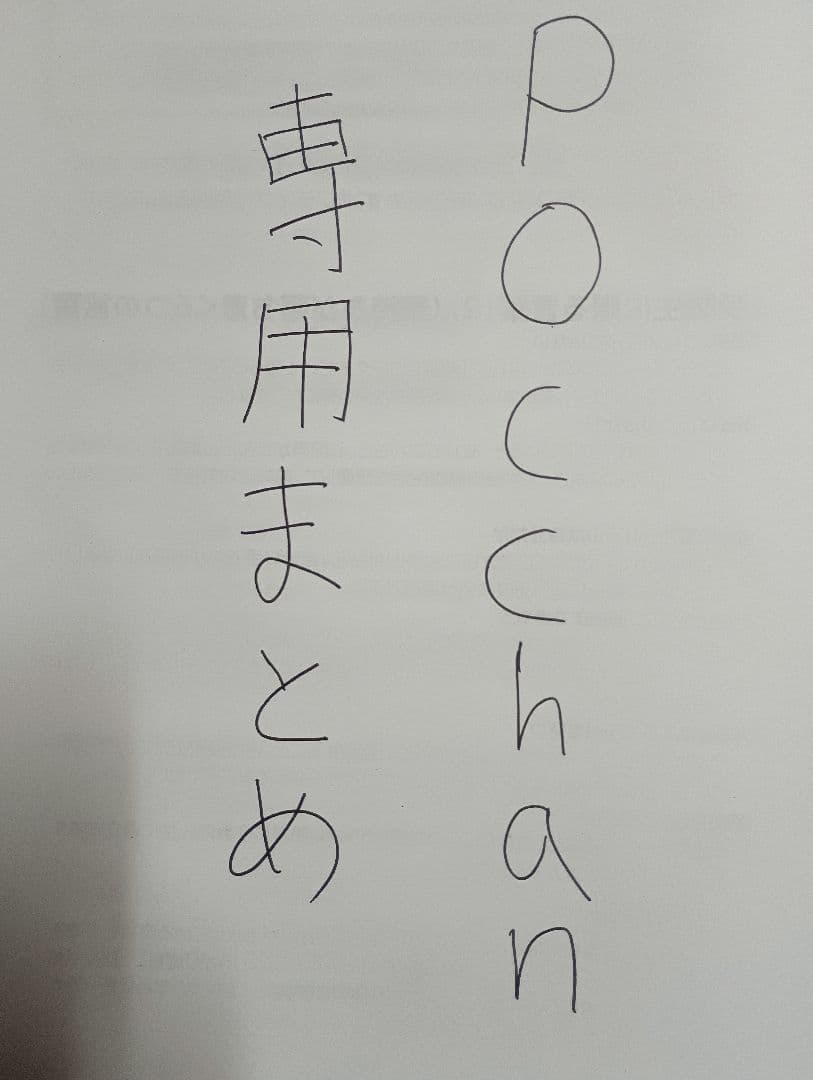 Pocchan
専用まとめ